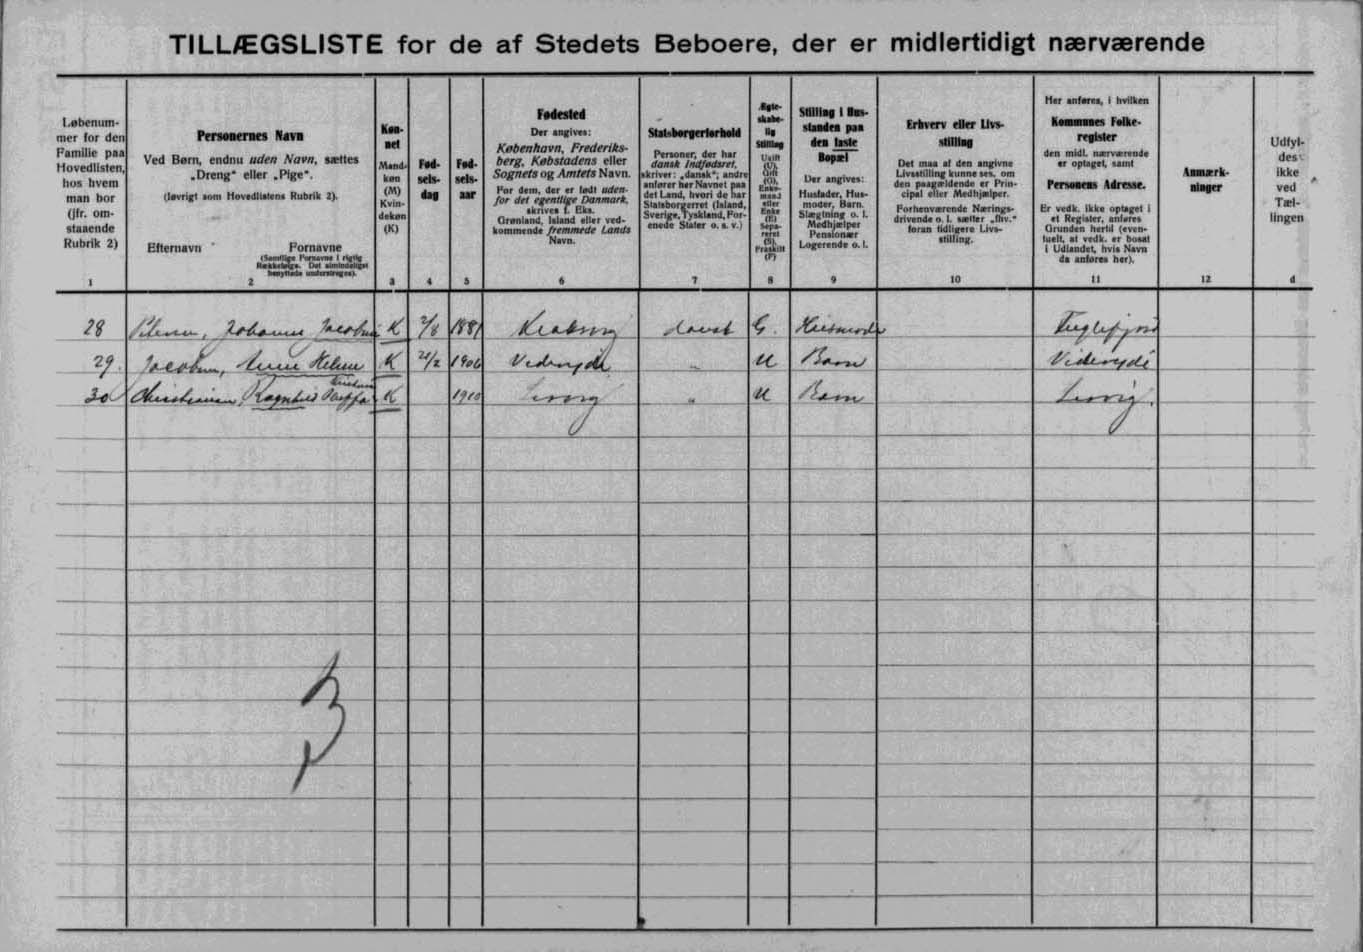 TILLÆGSLISTE for de af Stedets Beboere, der er midlertidigt nærværende
Løbenum-
mer for den
Familie paa
Hovedlisten,
hos hvem
man bor
(jfr. om-
staaende
Rubrik 2)
1
Personernes Navn
Ved Børn, endnu uden Navn, sættes
„Dreng“ eller „Pige“.
(Iøvrigt som Hovedlistens Rubrik 2).
Efternavn Fornavne
(Samtlige Fornavne i rigtig
Rækkefølge. Det almindeligst
benyttede understreges).
2
Køn-
net
Mand-
køn
(M)
Kvin-
dekøn
(K)
3
Fød-
sels-
dag
4
Fød-
sels-
aar
5
Fødested
Der angives:
København, Frederiks-
berg, Købstadens eller
Sognets og Amtets Navn.
For dem, der er født uden-
for det egentlige Danmark,
skrives f. Eks.
Grønland, Island eller ved-
kommende fremmede Lands
Navn.
6
Statsborgerforhold
Personer, der har
dansk Indfødsret,
skriver: „dansk“; andre
anfører her Navnet paa
det Land, hvori de har
Statsborgerret (Island,
Sverige, Tyskland, For-
enede Stater o. s. v.)
7
Ægte-
skabe-
lig
Stilling
Ugift
(U),
Gift
(G),
Enke-
mand
eller
Enke
(E)
Sepa-
reret
(S),
Fraskilt
(F)
8
Stilling i Hus-
standen paa
den faste
Bopæl
Der angives:
Husfader, Hus-
moder, Barn.
Slægtning o. l.
Medhjælper
Pensionær
Logerende o. l.
9
Erhverv eller Livs-
stilling
Det maa af den angivne
Livsstilling kunne ses, om
den paagældende er Prin-
cipal eller Medhjælper.
Forhenværende Nærings-
drivende o. l. sætter „fhv.“
foran tidligere Livs-
stilling.
10
Her anføres, i hvilken
Kommunes Folke-
register
den midl. nærværende
er optaget, samt
Personens Adresse.
Er vedk. ikke optaget i
et Register, anføres
Grunden hertil (even-
tuelt, at vedk. er bosat
i Udlandet, hvis Navn
da anføres her).
11
Anmærk-
ninger
12
Udfyl-
des
ikke
ved
Tæl-
lingen
d
28 Petersen, Johanne Jacobine K 2/8 1881 dansk G. Husmoder Fuglefjord
29. Jacobsen, Anne Helene K 1906 Viderejde " U Barn Viderejde
30 Christiansen, Ragnhild K 1910 Lervig " U Barn Lervig.
3